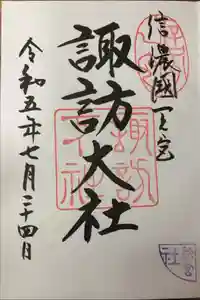 信濃國一之宮
諏訪大社
令和五年七月二十四日
諏訪
大社